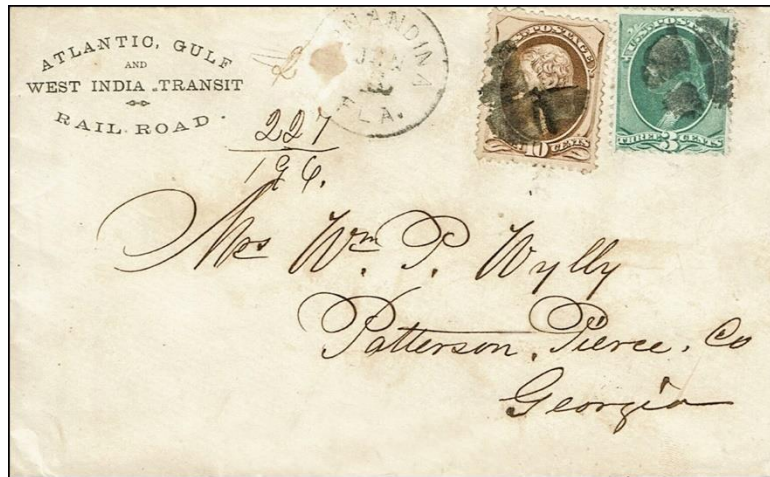 ATLANTIC, GULF
AND
WEST INDIA TRANSIT
RAIL ROAD.
NANDINA
FLA.
U.S. POSTAGE
THREE 3 CENTS
POSTAGE
10 CENTS
227
196.
Mrs Wm. P. Wylly
Patterson, Pierce, Co
Georgia